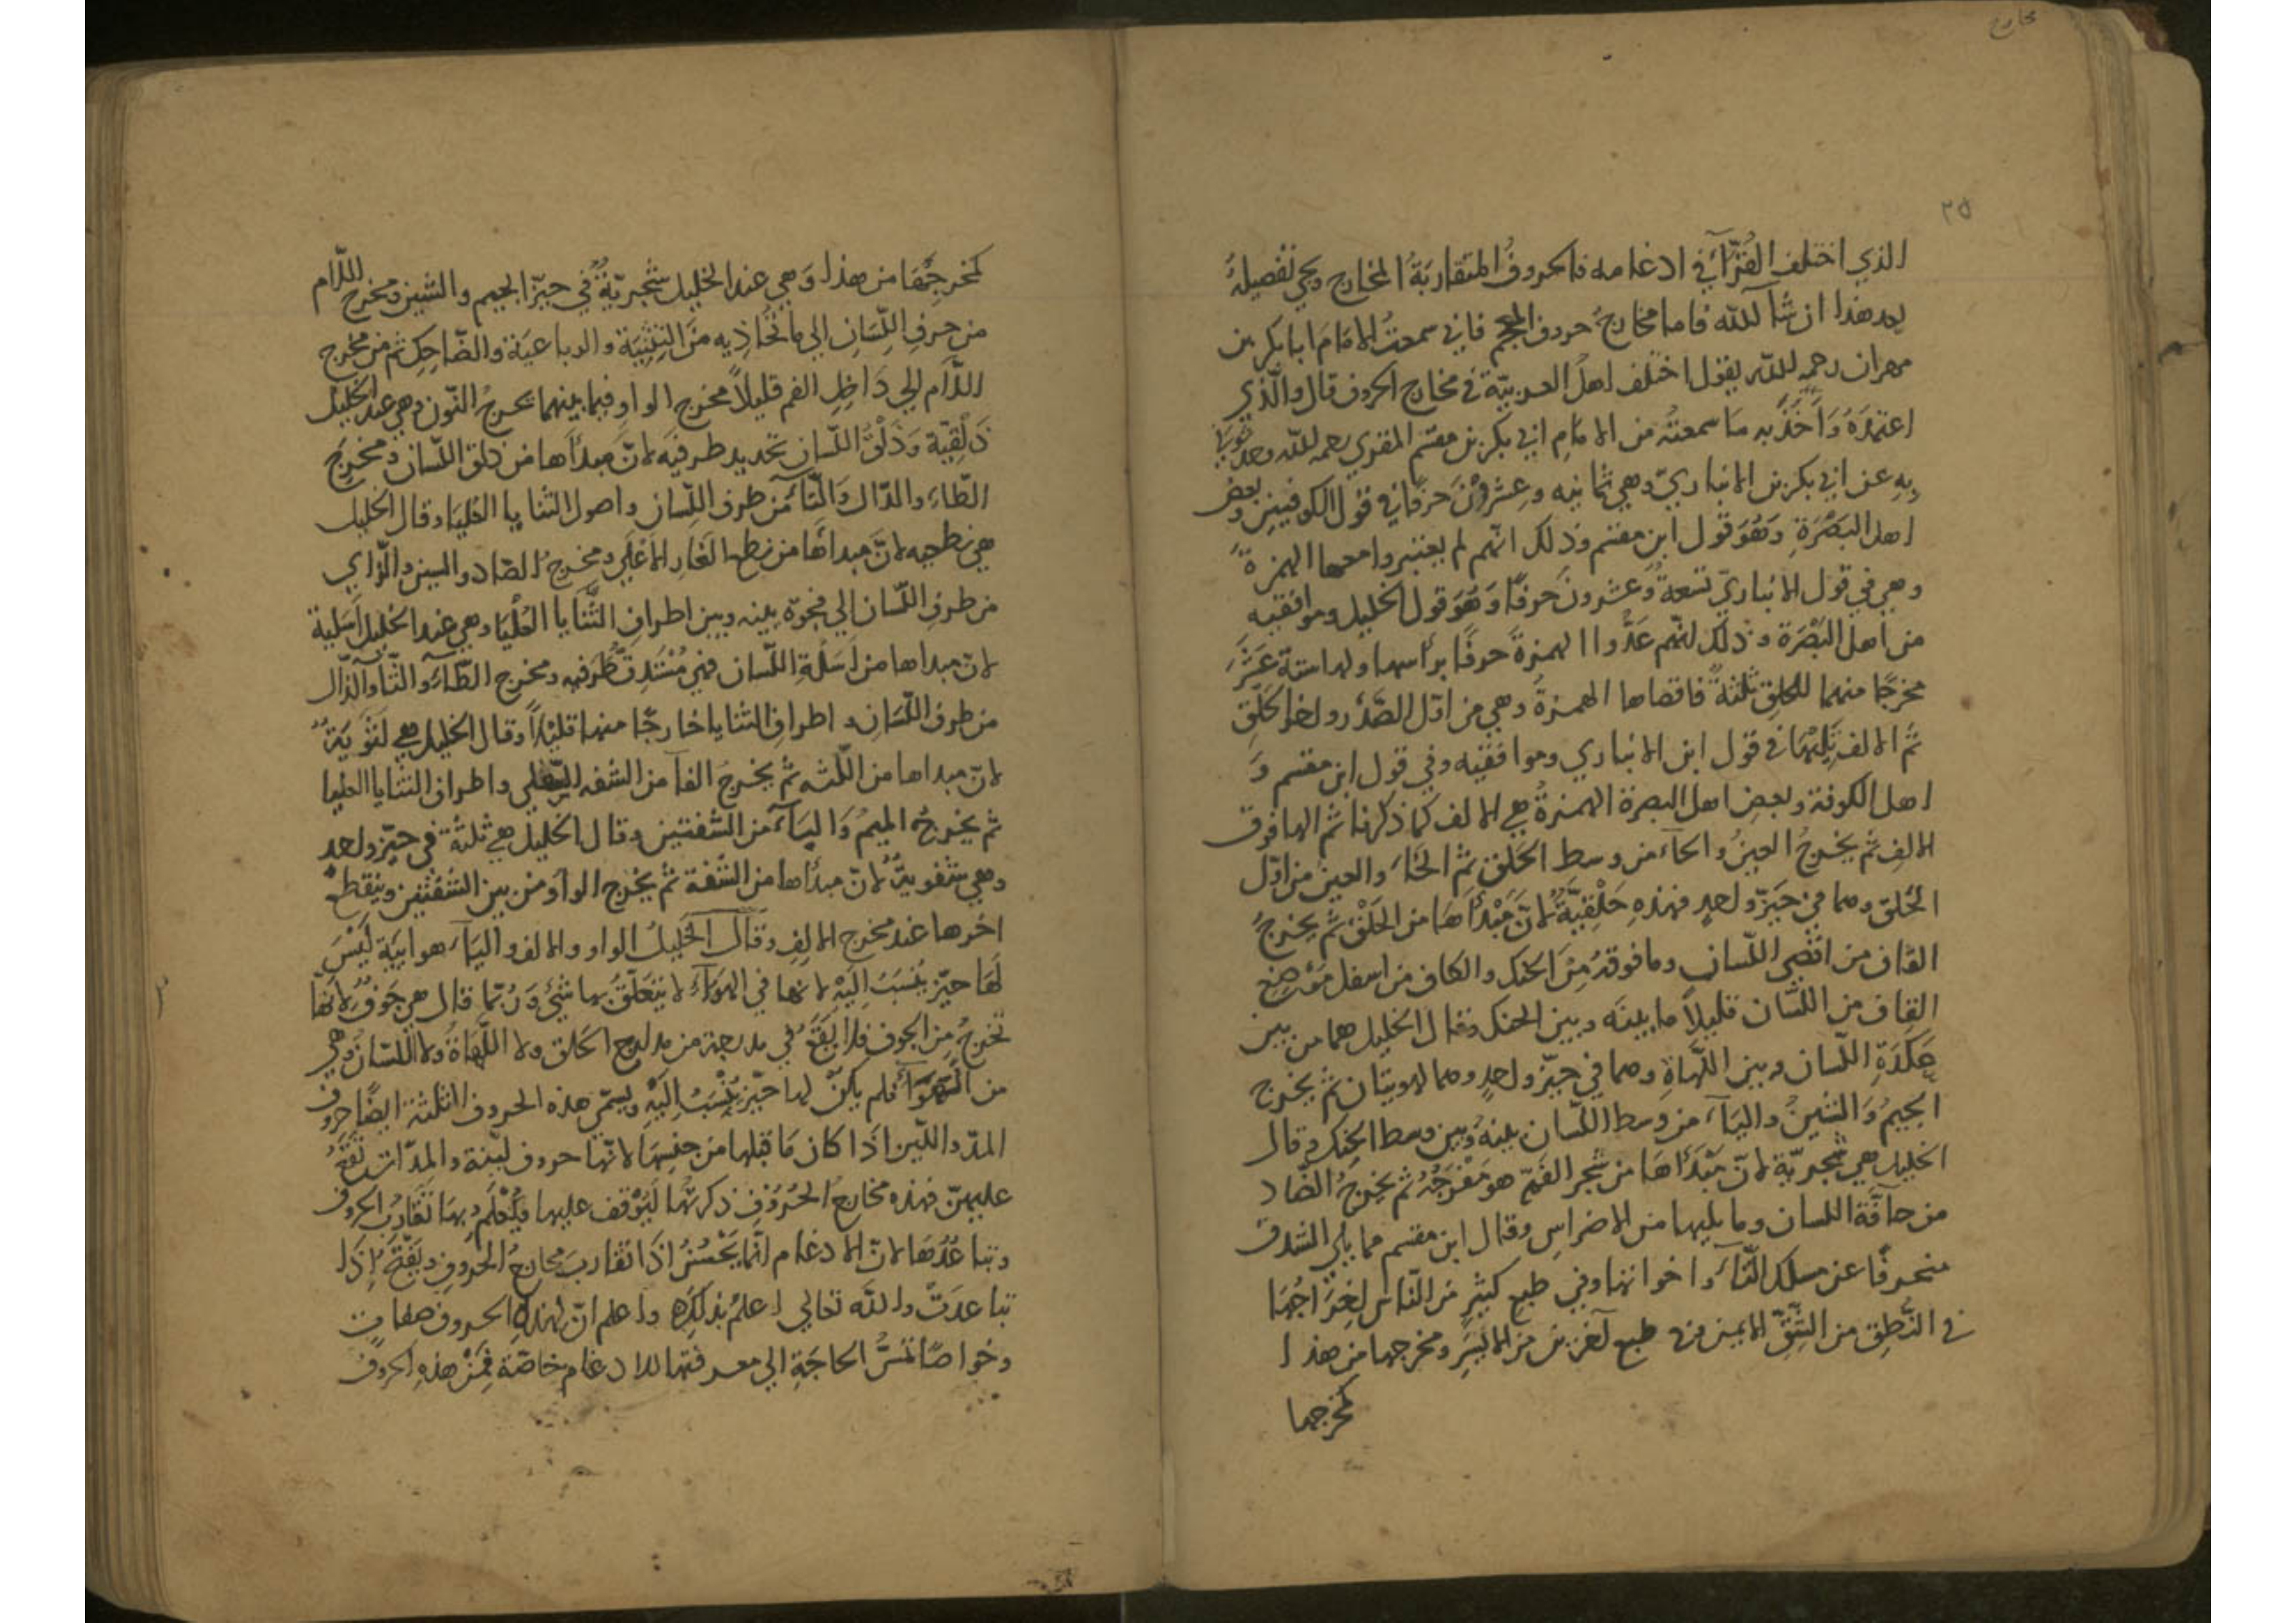 مخارج
٢٥
الذي اختلف القُرّآء في ادغامه فالحروفُ المتقاربَةُ المخارج ويجئ تفصيلهُ
بعد هذا ان شآ الله فاما مخارجُ حروف المعجم فاني سمعتُ الامَامَ ابا بكر بن
مهران رحمه الله يقول اختلف اهلُ العربيّة في مخارج الحروف قال والّذي
اعتمدُهُ وَآخُذُ به مَا سمعتُه من الامَامِ ابي بكر بن مقسم المقري رحمه الله
بِهِ عن ابي بكر بن الانباريّ وهي ثمانيه وعِشرُوْنَ حَرفًا في قول الكوفيين وبعض
اهل البَصْرَةِ وَهُوَ قول ابن مقسم وذلك انّهم لم يعتبروا معها الهمزةَ
وهي في قول الانباريّ تسعةٌ وَعشرون حَرفًا وَهُوَ قول الخليل وموافقيه
من اهل البَصْرَة وذلك لانّهم عَدُّوا الهمزةَ حَرفًا برأسها ولها ستة عَشَرَ
مخرجًا منهما للحلق ثلثةٌ فاقصاها الهمزةُ وهي من اوّل الصّدْر واخر الحَلْقِ
ثم الالف تَلِيْهَا في قول ابن الانباري وموافقيه وفي قول ابن مقسم وَ
اهل الكوفة وبعض اهل البصرة الهمزةُ هي الالف كما ذكرنا ثم الها فوق
الالف ثم يخرجُ العينُ والحآء من وسط الحَلْقِ ثم الخَاء والغين من اوّل
الحَلق وهما في حَيّزٍ واحدٍ فهذه حَلْقِيَّةٌ لانّ مَبْدَأهَا من الحَلْق ثم يخرجُ
القاف من اقصى اللسان وما فوقهُ مِنَ الحنك والكاف من اسفل مَوْضعِ
القاف من اللسان قليلاً ما بينَه وبين الحنك وقال الخليل هما من بين
عَكَدَةِ اللّسان وبين اللّهاةِ وهما في حَيّزٍ واحدٍ وهما لهويتان ثم يخرج
الجيمُ وَالشينُ واليَآء من وسط اللّسان بينهُ وبين وسط الحنك وقال
الخليل هي شجريّة لانّ مَبْدَأهَا من شجر الفَمّ هو مَفْرَجُهُ ثم يخرجُ الضّاد
من حافّة اللسان وما يليها من الاضراس وقال ابن مقسم مما يلي الشدق
منحرفًا عن مسلك الثّاء واخواتها وفي طبع كثيرٍ من النّاس
في النُّطِق من الشِّقِّ الايمن وفي طبع آخرين من الايسَرِ ومخرجها من هذا
كمخرجها
كمخرجِهَا من هذا وَهي عند الخليل شجريّةٌ في حيّز الجيم والشين ومخرج اللّام
من حرفِ اللِّسَانِ الي ما تُحَاذِيه منَ الثنيّة والرباعيّة والضّاحِك ثم من مخرج
اللّام الي دَاخِلِ الفم قليلاً مخرج الراءِ وفيما بينهما تخرجُ النّون وهي عند الخليل
ذَلْقِيّة وَذَلْقُ اللّسان تحديد طرفيه لانّ مبدأها من ذلق اللّسان ومخرجُ
الطّاء والدّال وَالتّآء من طرف اللّسان واصول الثنايا العُليَا وقال الخليل
هي نطعيه لانّ مبدأها من نطع الغَار الاَعْلَي ومخرجُ الصّاد والسين والزّاي
من طرفِ اللّسان الي فجوّه بينه وبين اطرافِ الثَّنَايا العُلْيَا وهي عند الخليل اَسَلية
لانّ مبداها من اَسَلَةِ اللّسان فهي مُسْتَدِقّ طَرَفيه ومخرج الظّآء والثّآ والذّال
من طرف اللّسَان واطراف الثنايا خارجًا منها قليلاً وقال الخليل هي لثَوِيَةٌ
لانّ مبداها من اللّثه ثم يخرجُ الفآ من الشفه السّفلي واطراف الثنايا العليا
ثم يخرجُ الميمُ وَالبَآء من الشّفتين وقال الخليل هي ثلثةٌ في حيّزٍ واحد
وهي شفويةٌ لانّ مبدأها من الشّفة ثم يخرج الواو من بين الشفتين وينقطع
اخرها عند مخرج الالفِ وَقَالَ الخَليلُ الواو والالف واليَآء هوايِيَة لَيْسَ
لَهَا حيّز يُنْسَبُ اِلَيْهِ لانها في الهوَآء لا يتعَلّقُ بها شَيْءٌ وَرُبّما قال هي جَوفٌ لانّهَا
تخرجُ مِن الجوف فلا يَقَعُ في مدرجة من مدارج الحَلق ولا اللَّهَاةِ ولا اللّسَان وهي
من الهَوآء فلم يكن لها حيّز تُنْسَبُ اِلَيْهِ ويُسمّي هذه الحروف الثلثة ايضًا حروف
المدّ واللّين اذَا كان مَا قبلها من جنسِهَا لانّها حروف ليّنة والمدّات تَقَعُ
عليهنّ فهذه مخارجُ الحُرُوْفِ ذكرتُهَا لِيُوْقف عليها وَيُعْلَم بهَا تَقَارُب الحروف
وتباعُدُهَا لانّ الادغام انّما يَحْسُنُ اذَا تقاربَ مخارجُ الحُروفِ ويَقْبَحُ اِذَا
تباعدَتْ والله تعالي اعلمُ بذلك واعلم انّ لهذه الحروف صفات
وخواصًا تمسُّ الحاجَةِ الي معرفتها للادغام خاصّة فَمِنْ هذه الحروف